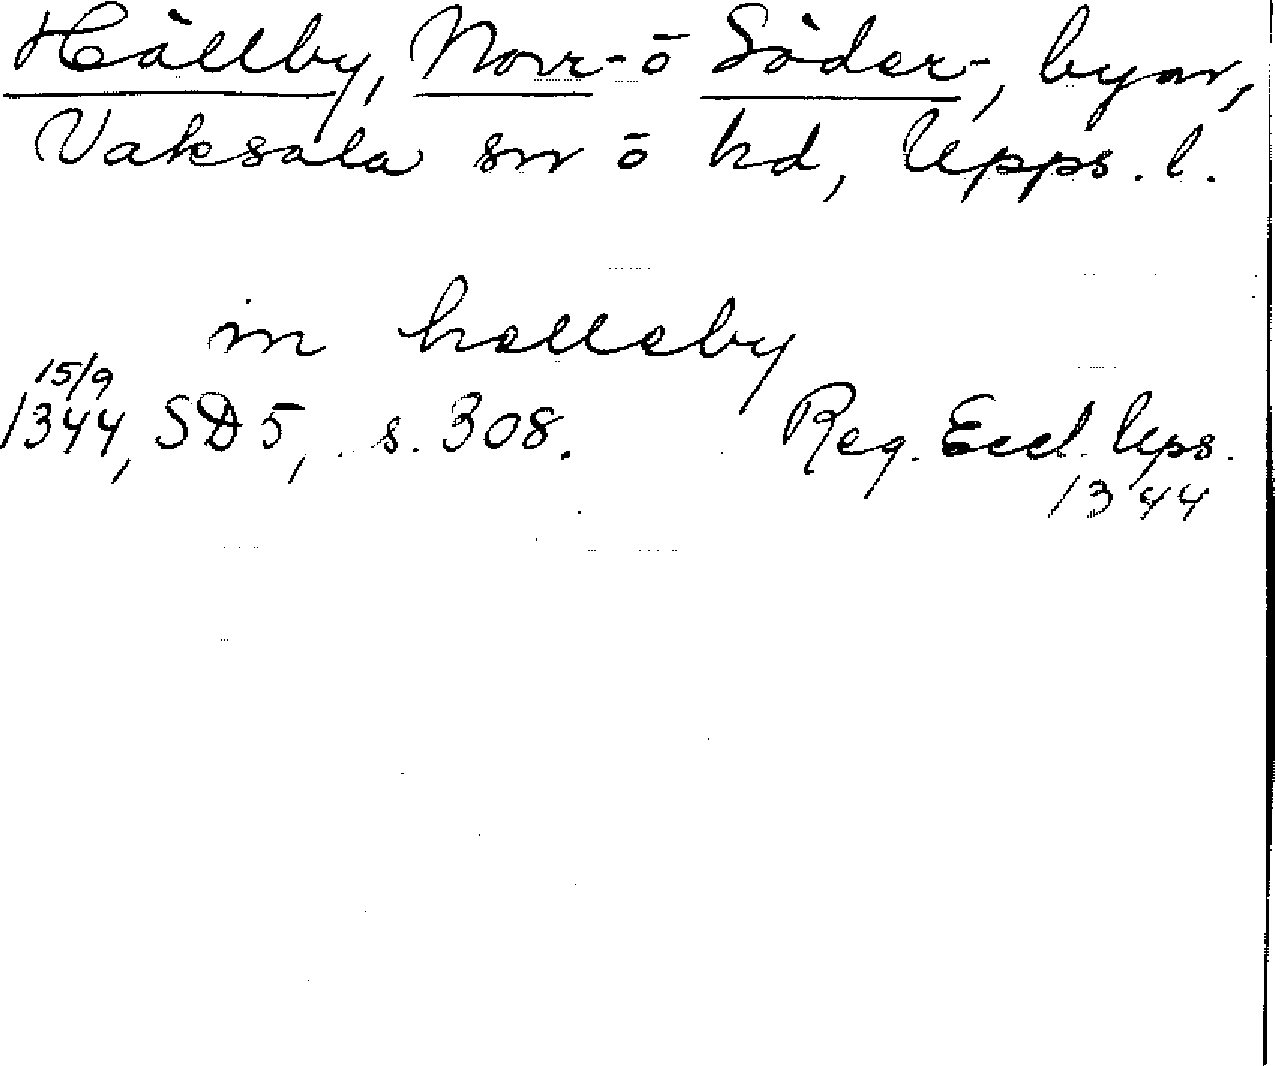 Hällby, Norr- o Söder-, byar,
Vaksala sn o hd, Upps. l.
in hælleby
15/9
1344, SD 5, s. 308. Reg. Eccl. Ups.
1344